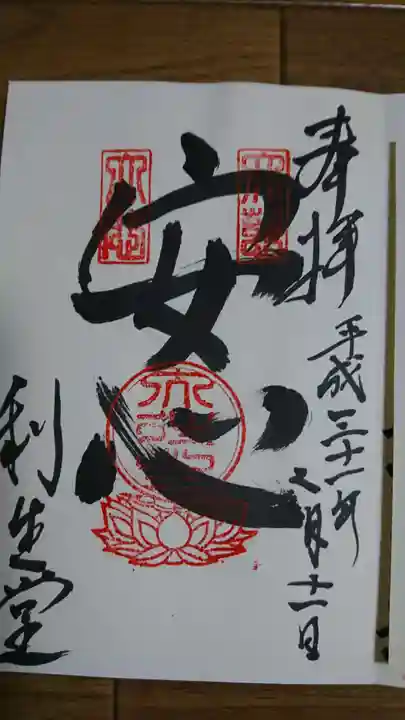 奉拝
平成三十一年二月十一日
安心
利生堂